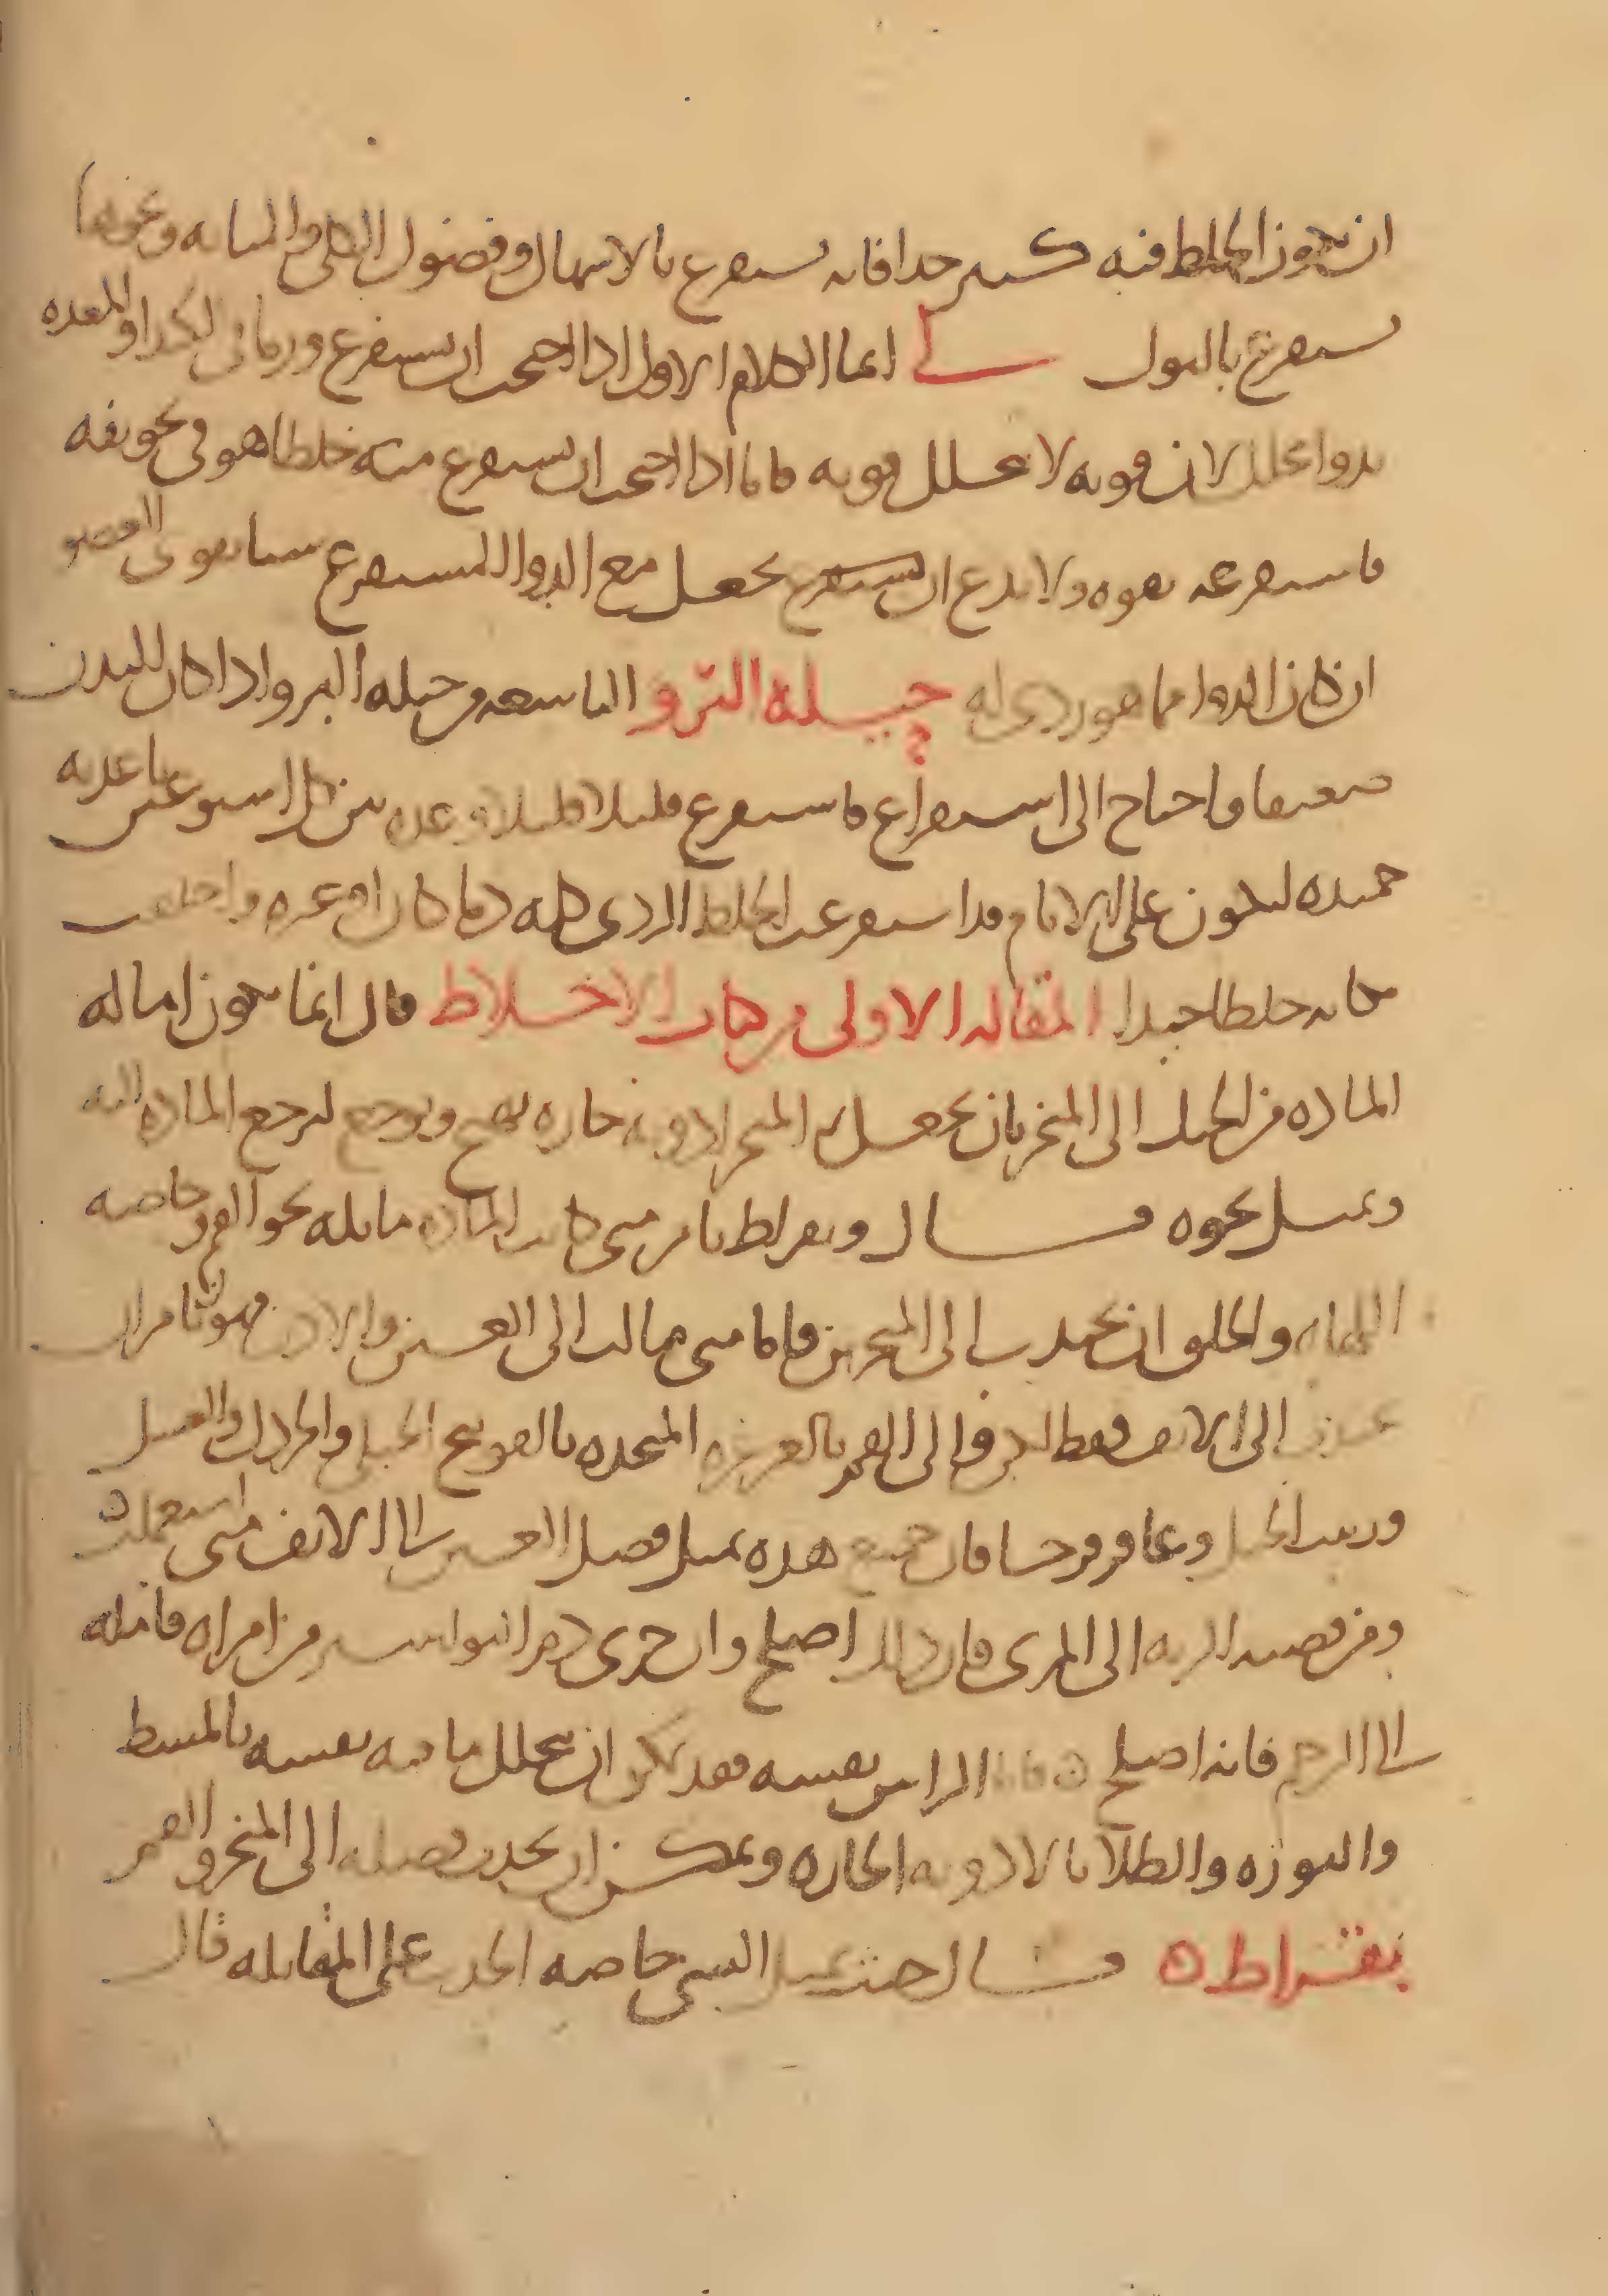 ان يكون الخلط فيه كثير جدا فانه يستفرغ بالاسهال وفضول الكلى والمثانه ونحوها
يستفرغ بالبول لي انما الكلام الاول اذا احتجت ان يستفرغ ورما في الكبد او المعده
بدوا محلل لان قوته لا تحلل قوته فاما اذا احتجت ان تستفرغ منه خلطا هو في تجويفه
فاستفرغه بقوه ولا تدع ان تستفرغ تجعل مع الدوا المستفرغ شيا يقوى العضو
ان كان الدوا مما هو ردى له حيله البرو التاسعه من حيله البرو اذا كان البدن
ضعيفا واحتاج الى استفراغ فاستفرغ قليلا قليلا وغذه بين كل اسبوعين باغذيه
حميده ليكون على الايام قد استفرغت الخلط الردى كله دما كان او غيره واخلفت
مكانه خلطا جيدا المقاله الاولى من كتاب الاخلاط قال انما يكون اماله
الماده من الحنك الى المنخر بان يجعل في المنخر ادويه حاره تفتح وتوجع لترجع الماده اليه
وتميل نحوه قال وبقراط يامر متى كانت الماده مايله نحو الفم وخاصه
اللهاه والحلق ان تجذب الى المنخرين فاما متى مالت الى العينين والاذن فهو يامر ان
تجذب الى الانف فقط لكن والى الفم بالغرغره المتخذه بالفودنج الجبلى والخردل والعسل
وزبيب الجبل وعاقرقرحا فان جميع هذه تميل فضل العين الى الانف متى استعملت
ومن قصبه الريه الى المرى فان ذلك اصلح وان جرى دم البواسير من امراه فامله
الى الرحم فانه اصلح فاما الراس نفسه فقد يمكن ان يحلل ما فيه نفسه بالمشط
والنوره والطلا بالادويه الحاره ويمكن ان يجذب فضله الى المنخر والفم
بقراط قال حيث يميل الشى خاصه الجذب على المقابله قال